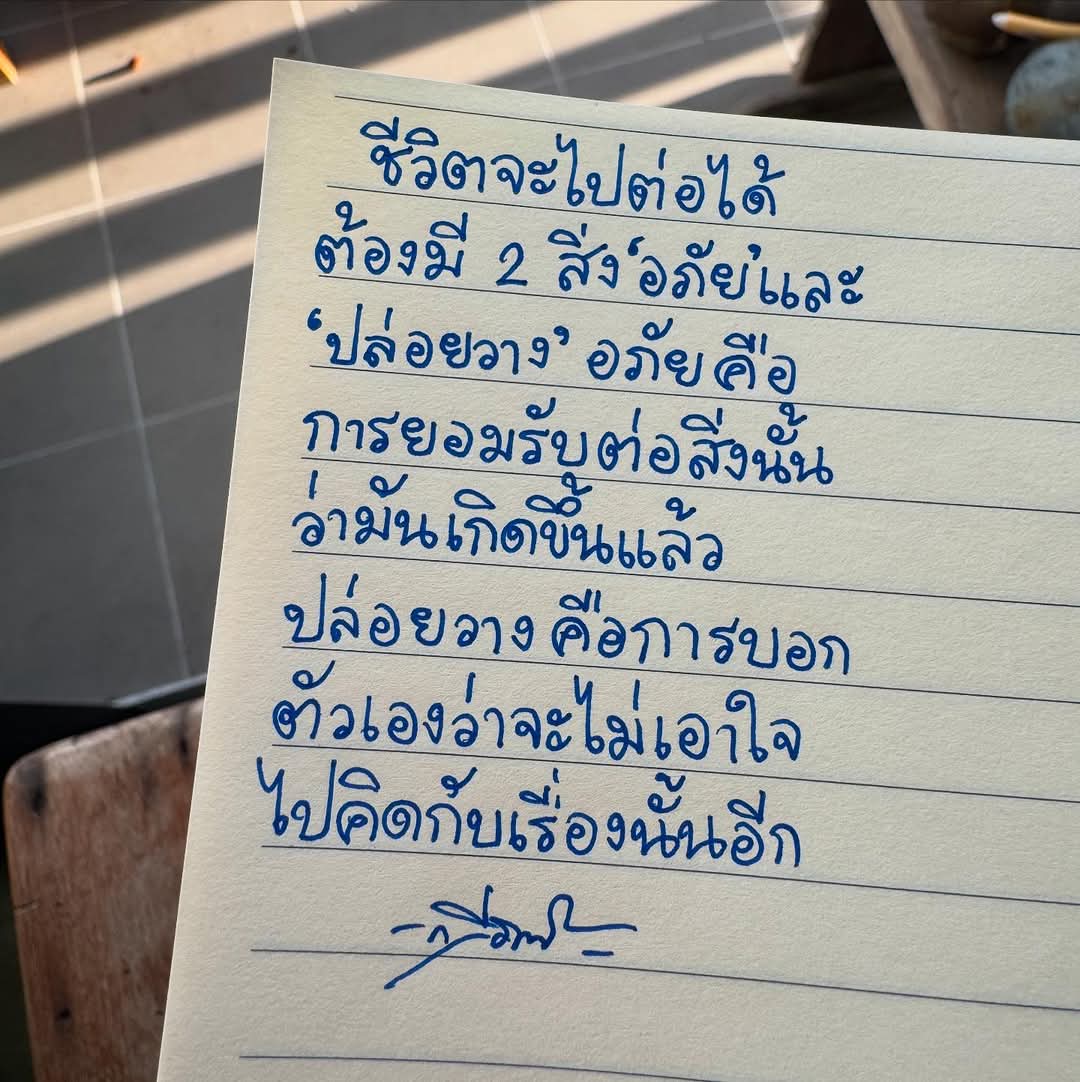 ชีวิตจะไปต่อได้
ต้องมี 2 สิ่ง 'อภัย' และ
'ปล่อยวาง' อภัยคือ
การยอมรับต่อสิ่งนั้น
ว่ามันเกิดขึ้นแล้ว
ปล่อยวางคือการบอก
ตัวเองว่าจะไม่เอาใจ
ไปคิดกับเรื่องนั้นอีก